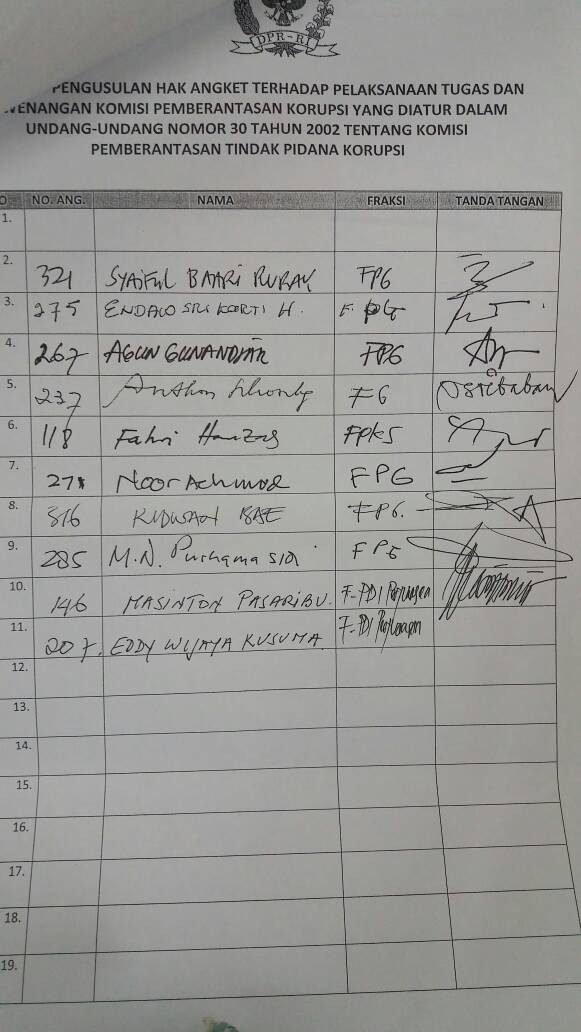 DPR-RI
PENGUSULAN HAK ANGKET TERHADAP PELAKSANAAN TUGAS DAN
WENANGAN KOMISI PEMBERANTASAN KORUPSI YANG DIATUR DALAM
UNDANG-UNDANG NOMOR 30 TAHUN 2002 TENTANG KOMISI
PEMBERANTASAN TINDAK PIDANA KORUPSI
O NO. ANG. NAMA FRAKSI TANDA TANGAN
1.
2. 321 SYAIFUL BAHRI RURAY FPG
3. 275 ENDANG SRI KARTI H. F. PG
4. 267 AGUN GUNANDJAR FPG
5. 237 Anthon Sihombing FG
6. 118 Fahri Hamzah FPKS
7. 27 Noor Achmad FPG
8. 316 FPG.
9. 285 M.N. Purnamasidi FPG
10. 146 MASINTON PASARIBU. F-PDI Perjuangan
11. 207. EDDY WIJAYA KUSUMA F-PDI Perjuangan
12.
13.
14.
15.
16.
17.
18.
19.